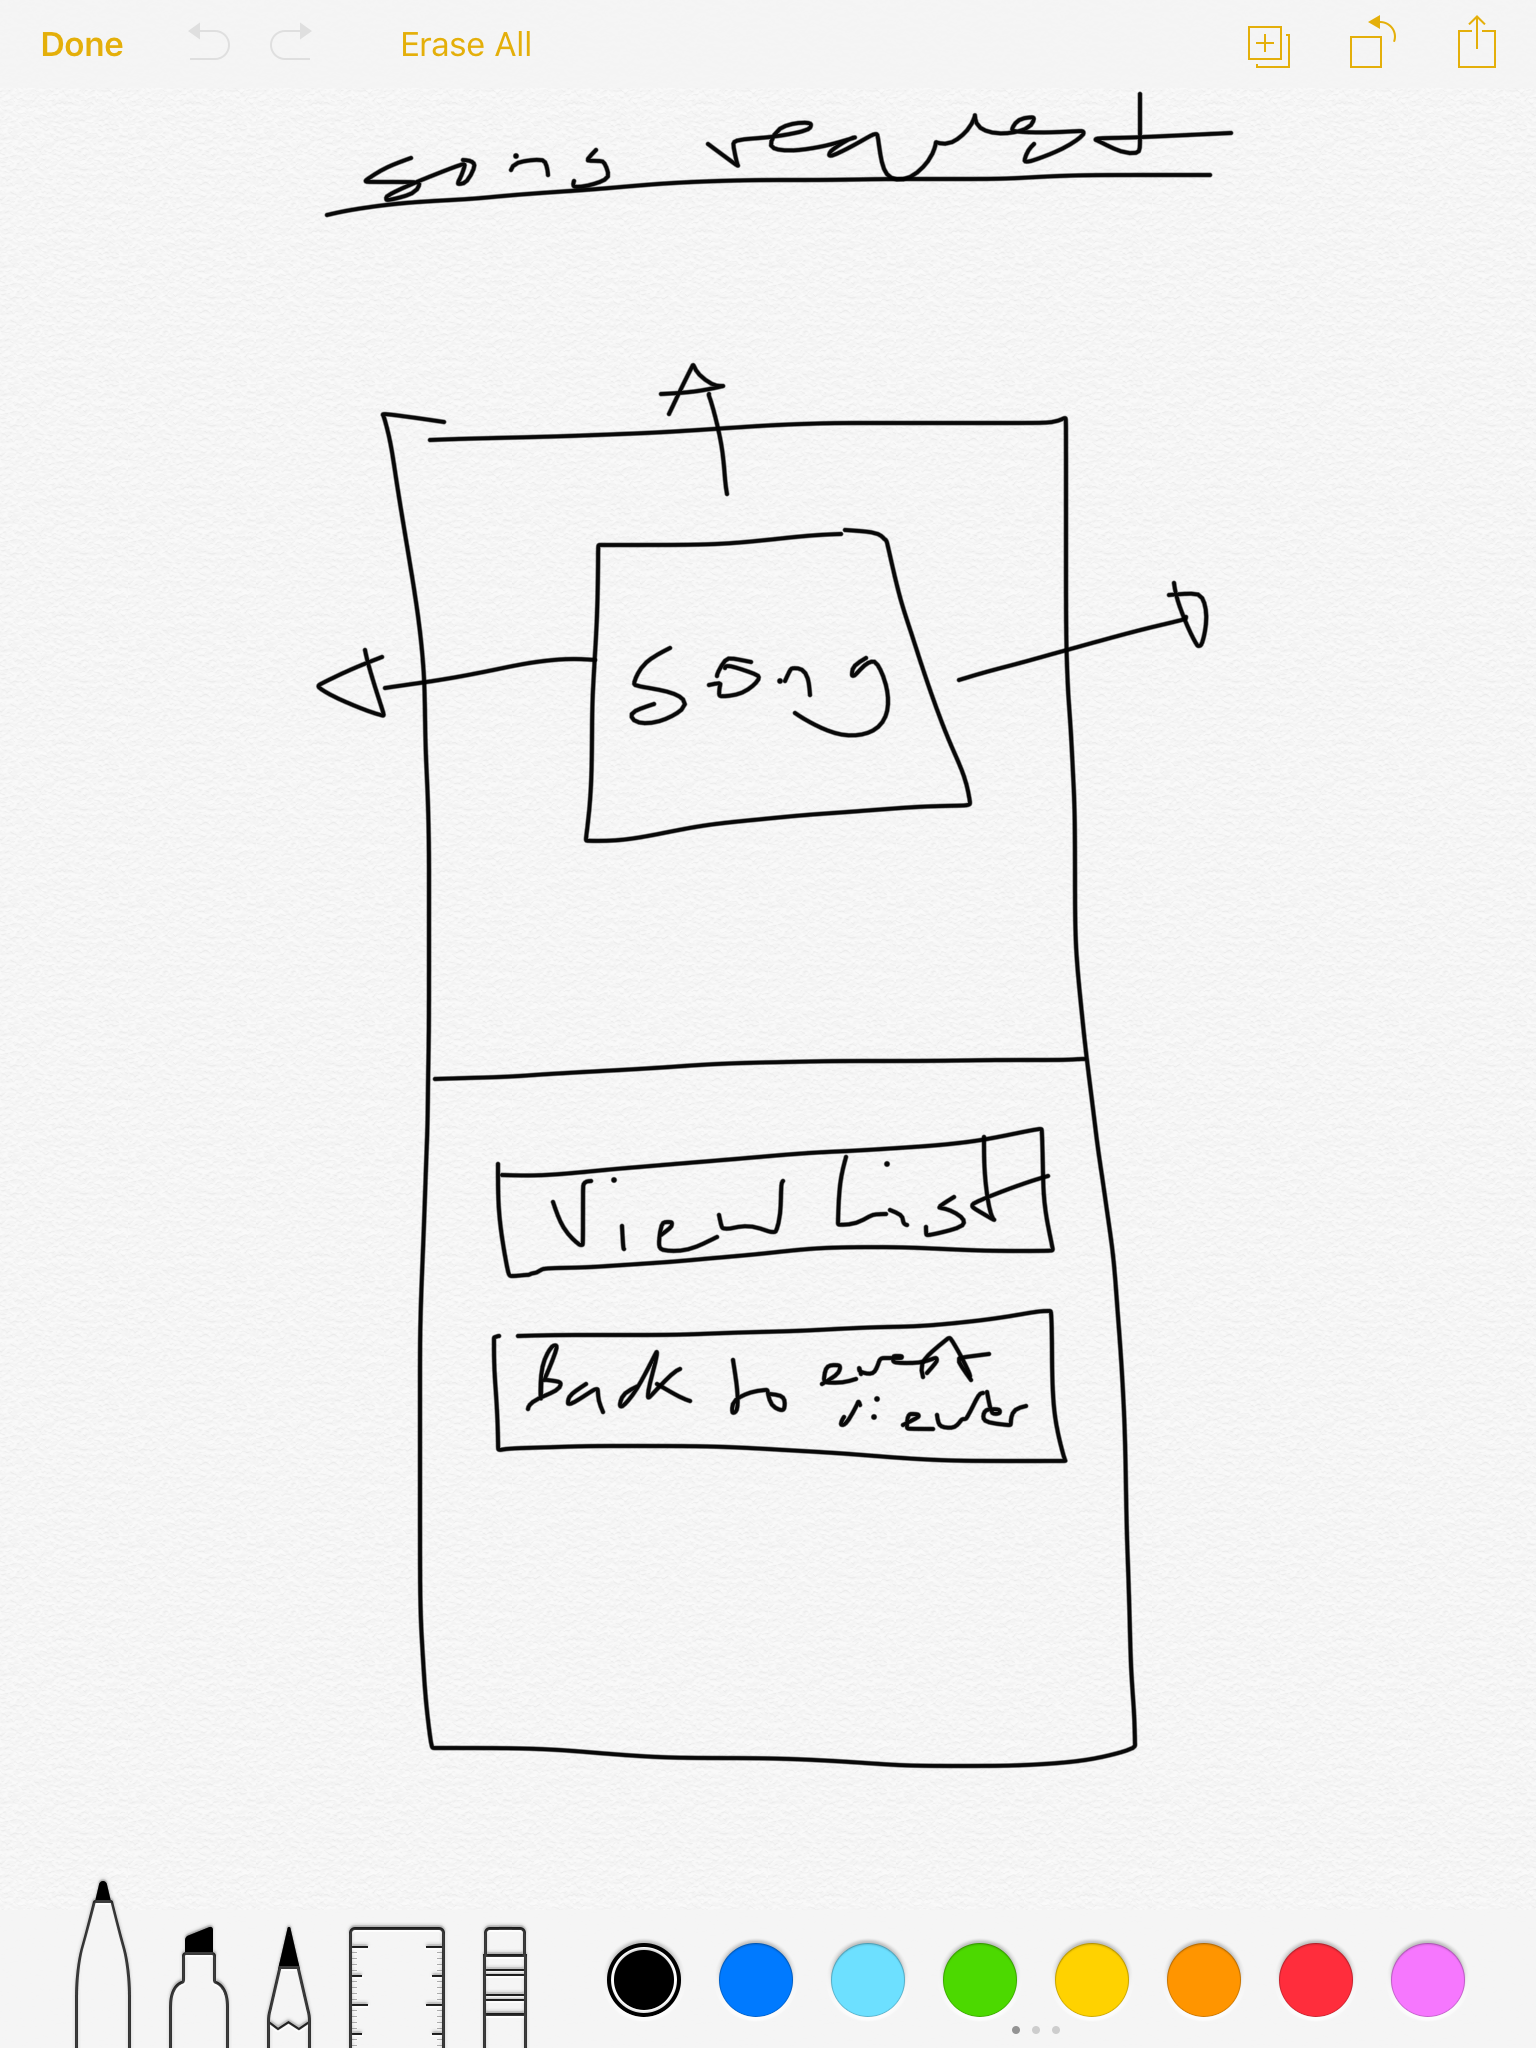 Done Erase All
song request
Song
View List
Back to event
viewer